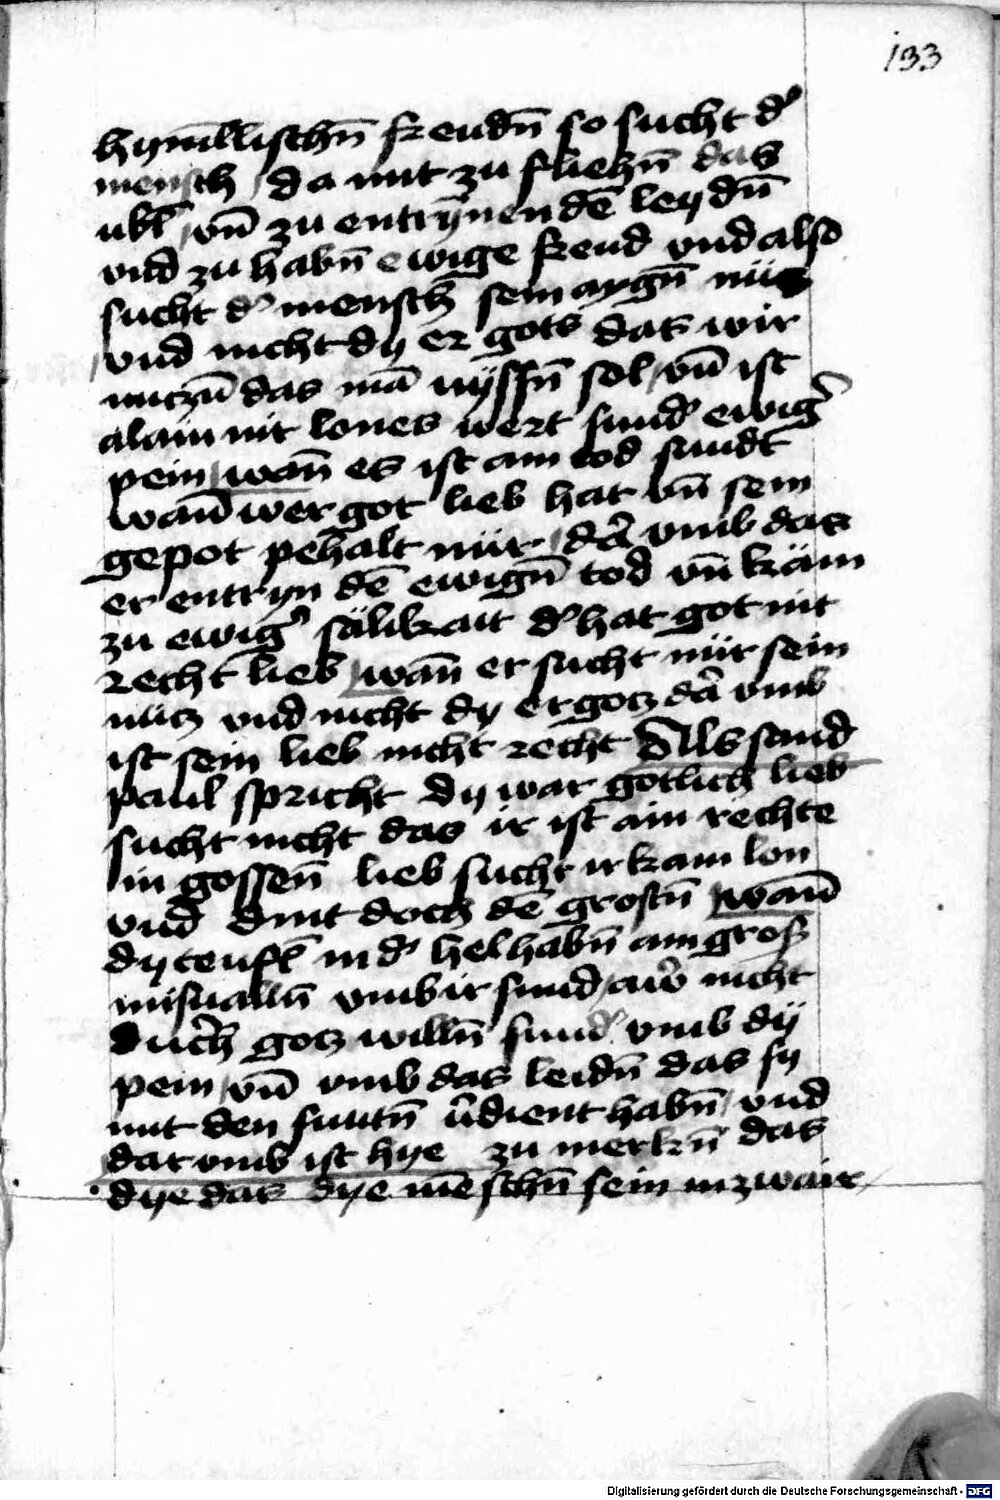 133
hymilischn̄ freudn̄ so sucht d'
mensch / da mit zu fliehn̄ das
ubl̄ / vn̄ zu entrȳnen dē leydn̄
vnd zu habn̄ ewige freud vnd also
sucht d' mensch sein aygn̄ nücz
vnd nicht dy er gots das wir
nuczn̄ das mā nyssn̄ sol / vn̄ ist
alain nit lones wert sund' ewig'
pein / wan̄ es ist ain tod sundt
wan̄ wer got lieb hat vn̄ sein
gepot pehalt nür / dā vmb das
er entryn dē ewign̄ tod vn̄ käm
zu ewig' sälikait d' hat got nit
recht lieb / wan̄ er sucht nür sein
nücz vnd nicht dy er gocz dā vmb
ist sein lieb nicht recht Als sand
paul spricht dy war gotlich lieb
sucht nicht das ir ist ain rechte
in gossen̄ lieb sucht ir kain lon
vnd dint doch dē grostn̄ / wan̄
dy teufl̄ in d' hel habn̄ ain gros
misualln̄ vmb ir sund / aw' nicht
durch gocz willn̄ sund' vmb dy
pein / vn̄ vmb das leidn̄ das sy
mit den suntn̄ v'dient habn̄ / vnd
dar vmb ist hye zu merkn̄ das
dye das dye mēschn̄ sein in zwair
Digitalisierung gefördert durch die Deutsche Forschungsgemeinschaft - DFG